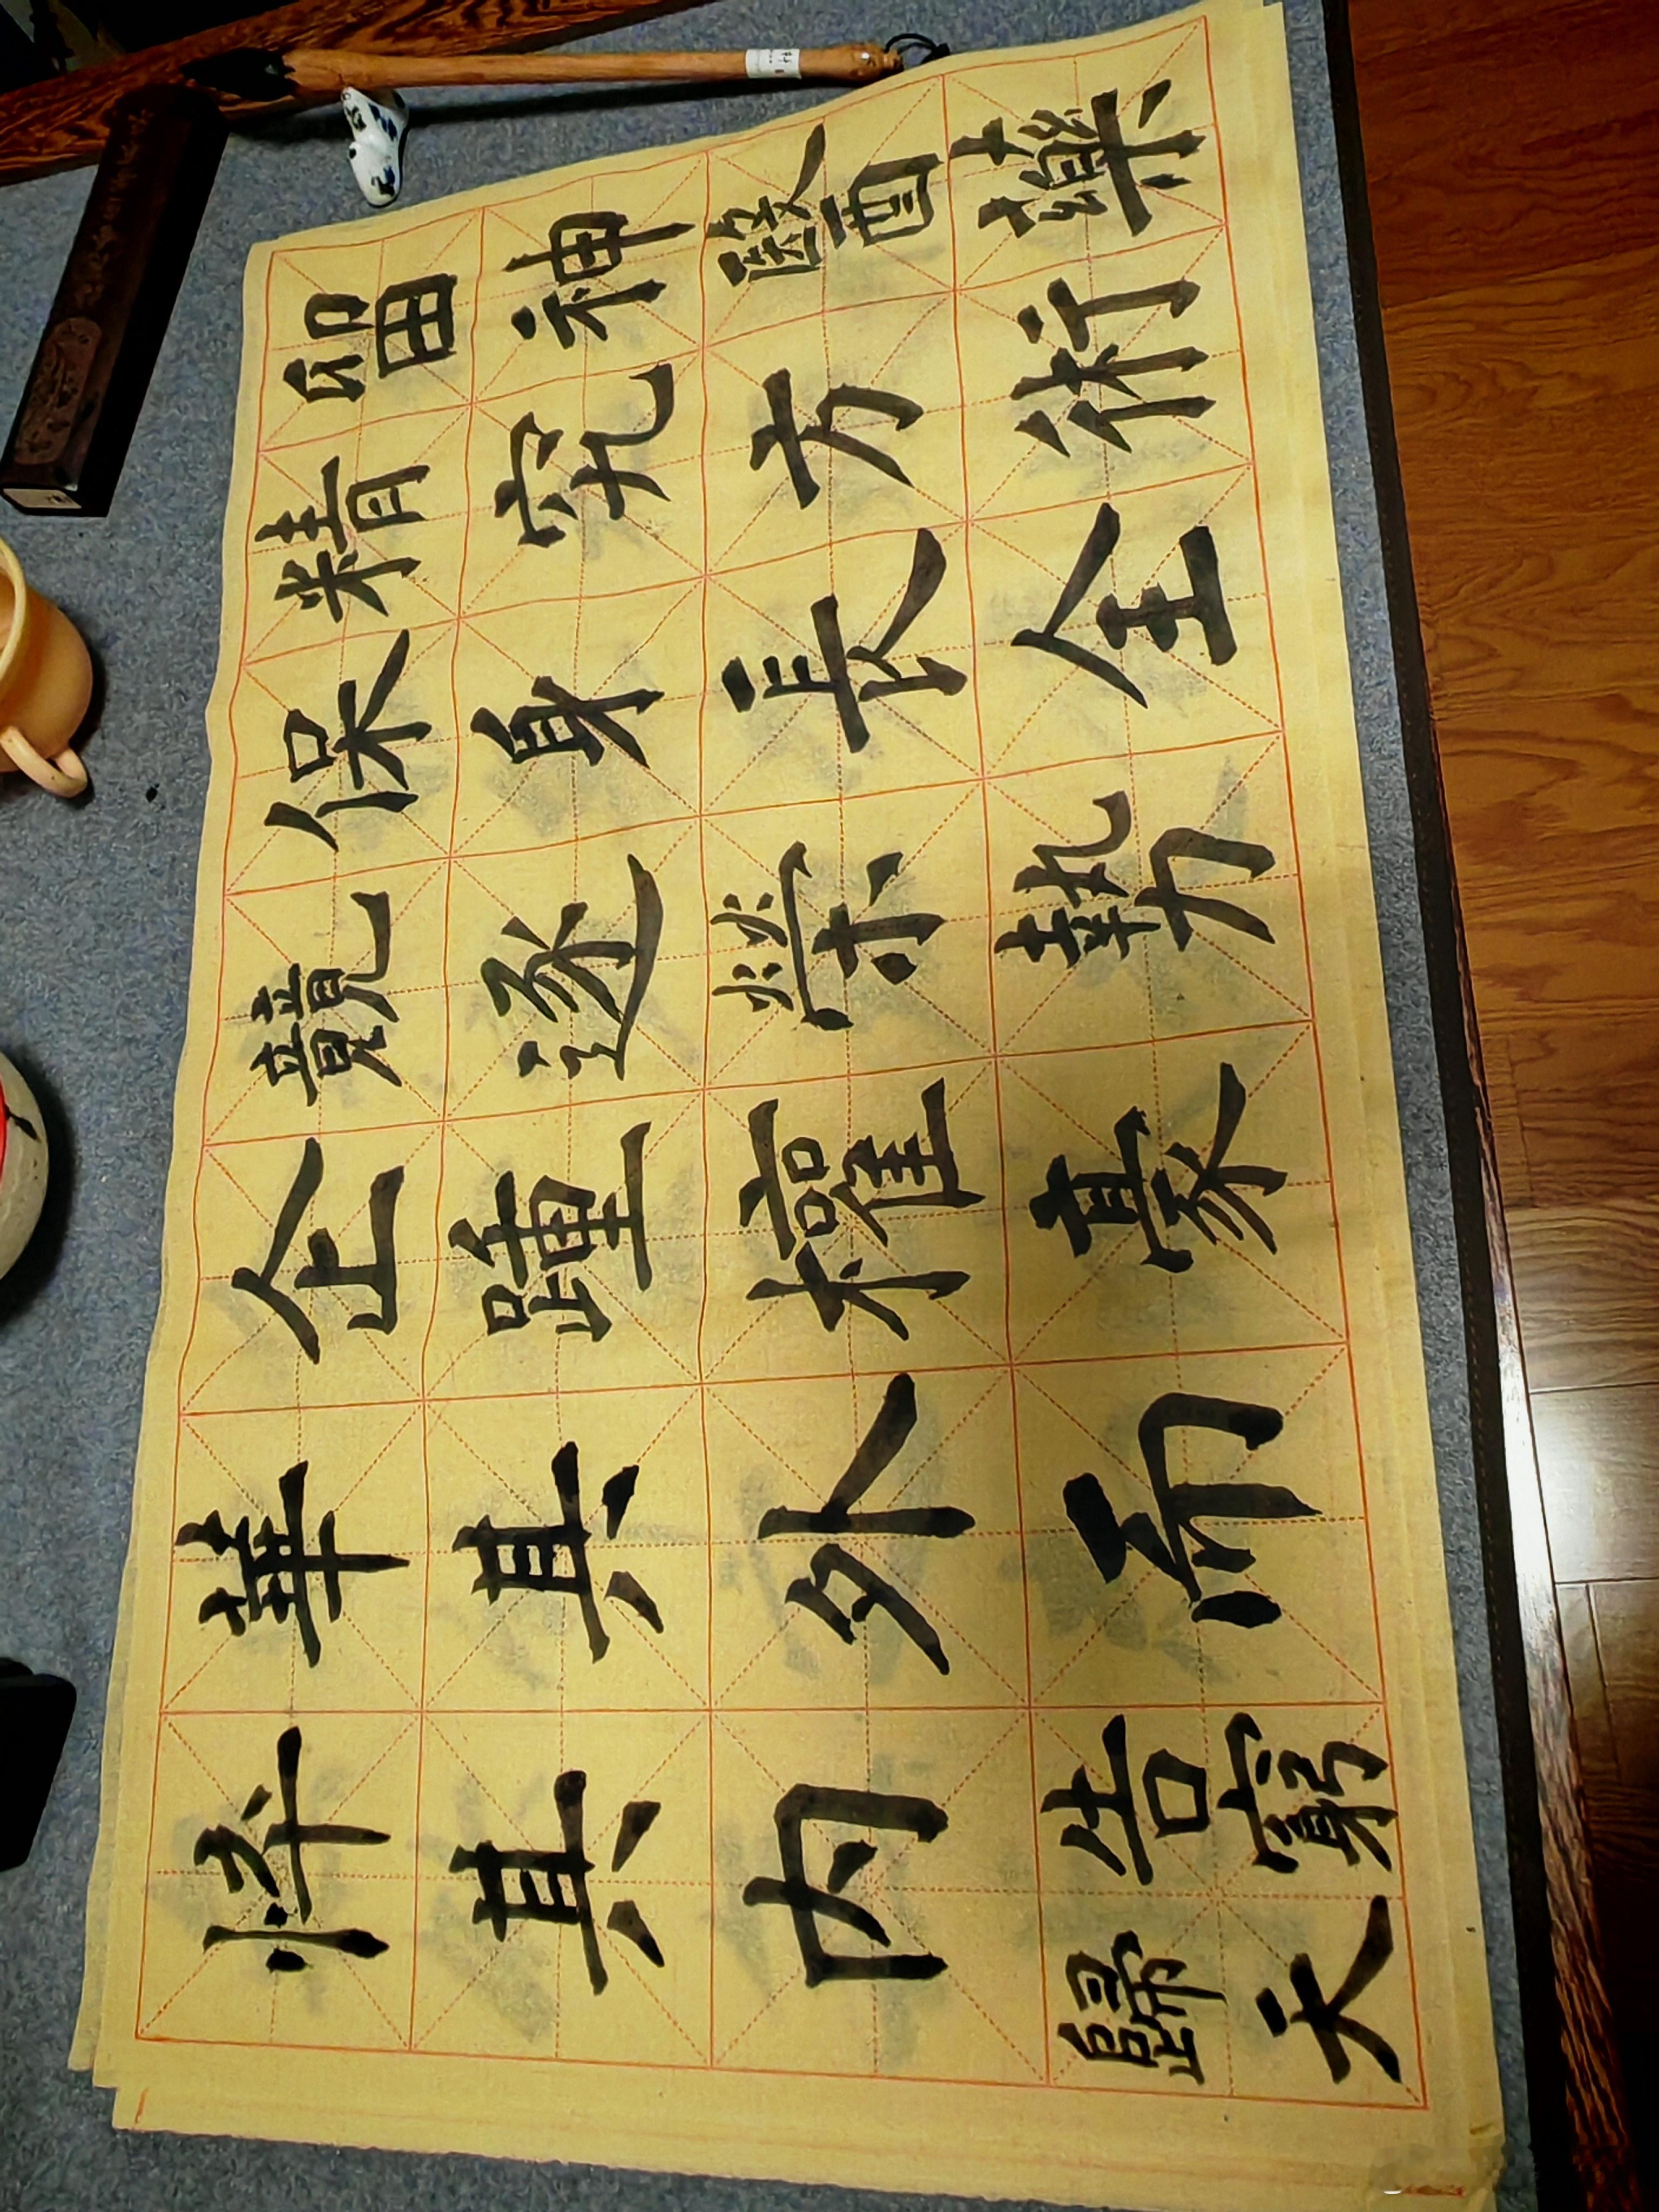 留神醫藥
精究方術
保身長全
競逐榮勢
企踵權豪
華其外而
悴其内告窮
歸天